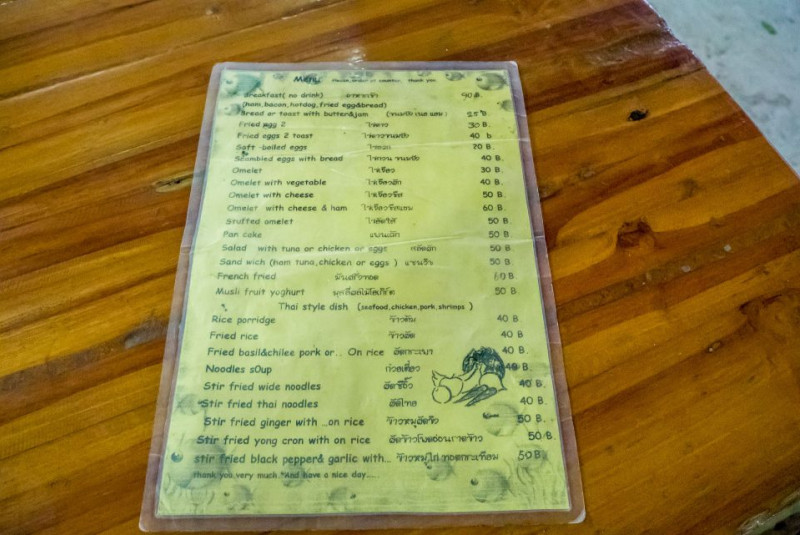 Menu
Breakfast( no drink) อาหารเช้า 90 B.
(ham,bacon,hotdog,fried egg&bread)
Bread or toast with butter&jam 25 B.
Fried egg 2 ไข่ดาว 30 B.
Fried eggs 2 toast ไข่ดาวขนมปัง 40 b
Soft -boiled eggs ไข่ลวก 20 B.
Scambled eggs with bread ไข่กวน ขนมปัง 40 B.
Omelet ไข่เจียว 30 B.
Omelet with vegetable ไข่เจียวผัก 40 B.
Omelet with cheese ไข่เจียวชีส 50 B.
Omelet with cheese & ham ไข่เจียวชีสแฮม 60 B.
Stuffed omelet ไข่ยัดไส้ 50 B.
Pan cake แพนเค้ก 50 B.
Salad with tuna or chicken or eggs สลัดผัก 50 B.
Sand wich (ham tuna,chicken or eggs ) แซนวิช 50 B.
French fried มันฝรั่งทอด 60 B
Musli fruit yoghurt 50 B.
Thai style dish (seafood,chicken,pork,shrimps )
Rice porridge ข้าวต้ม 40 B
Fried rice ข้าวผัด 40 B
Fried basil&chilee pork or.. On rice ผัดกระเพา 40 B.
Noodles s0up ก๋วยเตี๋ยว 40 B.
Stir fried wide noodles ผัดซีอิ๊ว 40 B.
Stir fried thai noodles ผัดไทย 40 B.
Stir fried ginger with ...on rice ข้าวหมูผัดขิง 50 B.
Stir fried yong cron with on rice ผัดข้าวโพดอ่อนราดข้าว 50 B.
stir fried black pepper& garlic with... ข้าวหมูไก่ ทอดกระเทียม 50 B.
thank you very much *And have a nice day.....